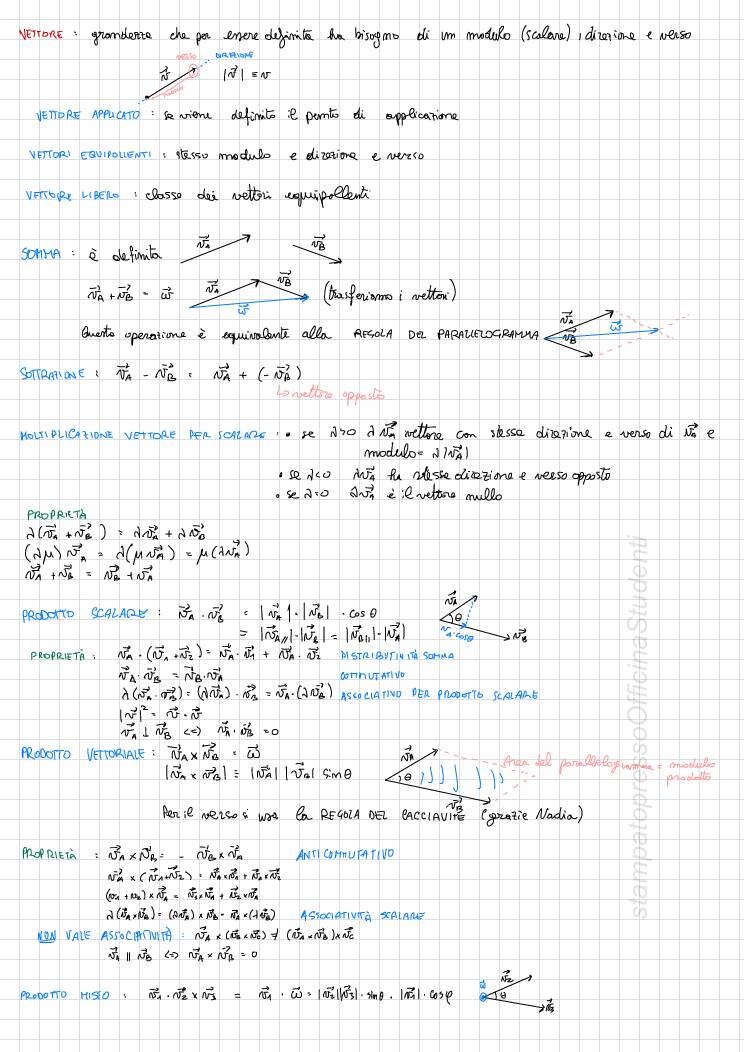 VETTORE : grandezza che per essere definita ha bisogno di un modulo (scalare), direzione e verso
VERSO DIREZIONE
v⃗ |v⃗| = v
MODULO
VETTORE APPLICATO : se viene definito il punto di applicazione
VETTORI EQUIPOLLENTI : stesso modulo e direzione e verso
VETTORE LIBERO : classe dei vettori equipollenti
SOMMA : è definita v⃗A v⃗B
v⃗A + v⃗B = w⃗ v⃗A v⃗B w⃗ (trasferiamo i vettori)
Questa operazione è equivalente alla REGOLA DEL PARALLELOGRAMMA v⃗A v⃗B w⃗
SOTTRAZIONE : v⃗A - v⃗B = v⃗A + (-v⃗B)
↳ vettore opposto
MOLTIPLICAZIONE VETTORE PER SCALARE : • se λ>0 λv⃗A vettore con stessa direzione e verso di v⃗A e
modulo = λ|v⃗A|
• se λ<0 λv⃗A ha stessa direzione e verso opposto
• se λ=0 λv⃗A è il vettore nullo
PROPRIETÀ
λ(v⃗A + v⃗B) = λv⃗A + λv⃗B
(λμ)v⃗A = λ(μv⃗A) = μ(λv⃗A)
v⃗A + v⃗B = v⃗B + v⃗A
PRODOTTO SCALARE : v⃗A · v⃗B = |v⃗A| · |v⃗B| · cosθ v⃗A θ vA·cosθ v⃗B
= |v⃗A∥|·|v⃗B| = |v⃗B∥|·|v⃗A|
PROPRIETÀ : v⃗A · (v⃗1 + v⃗2) = v⃗A · v⃗1 + v⃗A · v⃗2 DISTRIBUTIVITÀ SOMMA
v⃗A · v⃗B = v⃗B · v⃗A COMMUTATIVO
λ(v⃗A · v⃗B) = (λv⃗A) · v⃗B = v⃗A · (λv⃗B) ASSOCIATIVO PER PRODOTTO SCALARE
|v⃗|² = v⃗ · v⃗
v⃗A ⊥ v⃗B <=> v⃗A · v⃗B = 0
PRODOTTO VETTORIALE : v⃗A × v⃗B = w⃗ v⃗A θ v⃗B Area del parallelogramma = modulo prodotto
|v⃗A × v⃗B| = |v⃗A| |v⃗B| sinθ
Per il verso si usa la REGOLA DEL CACCIAVITE (grazie Nadia)
PROPRIETÀ : v⃗A × v⃗B = - v⃗B × v⃗A ANTICOMMUTATIVO
v⃗A × (v⃗1 + v⃗2) = v⃗A × v⃗1 + v⃗A × v⃗2
(v⃗1 + v⃗2) × v⃗A = v⃗1 × v⃗A + v⃗2 × v⃗A
λ(v⃗A × v⃗B) = (λv⃗A) × v⃗B = v⃗A × (λv⃗B) ASSOCIATIVITÀ SCALARE
NON VALE ASSOCIATIVITÀ : v⃗A × (v⃗B × v⃗C) ≠ (v⃗A × v⃗B) × v⃗C
v⃗A ∥ v⃗B <=> v⃗A × v⃗B = 0
PRODOTTO MISTO : v⃗1 · v⃗2 × v⃗3 = v⃗1 · w⃗ = |v⃗2||v⃗3| · sinθ · |v⃗1| · cosφ w⃗ v⃗2 θ v⃗3
stampatopressoOfficinaStudenti